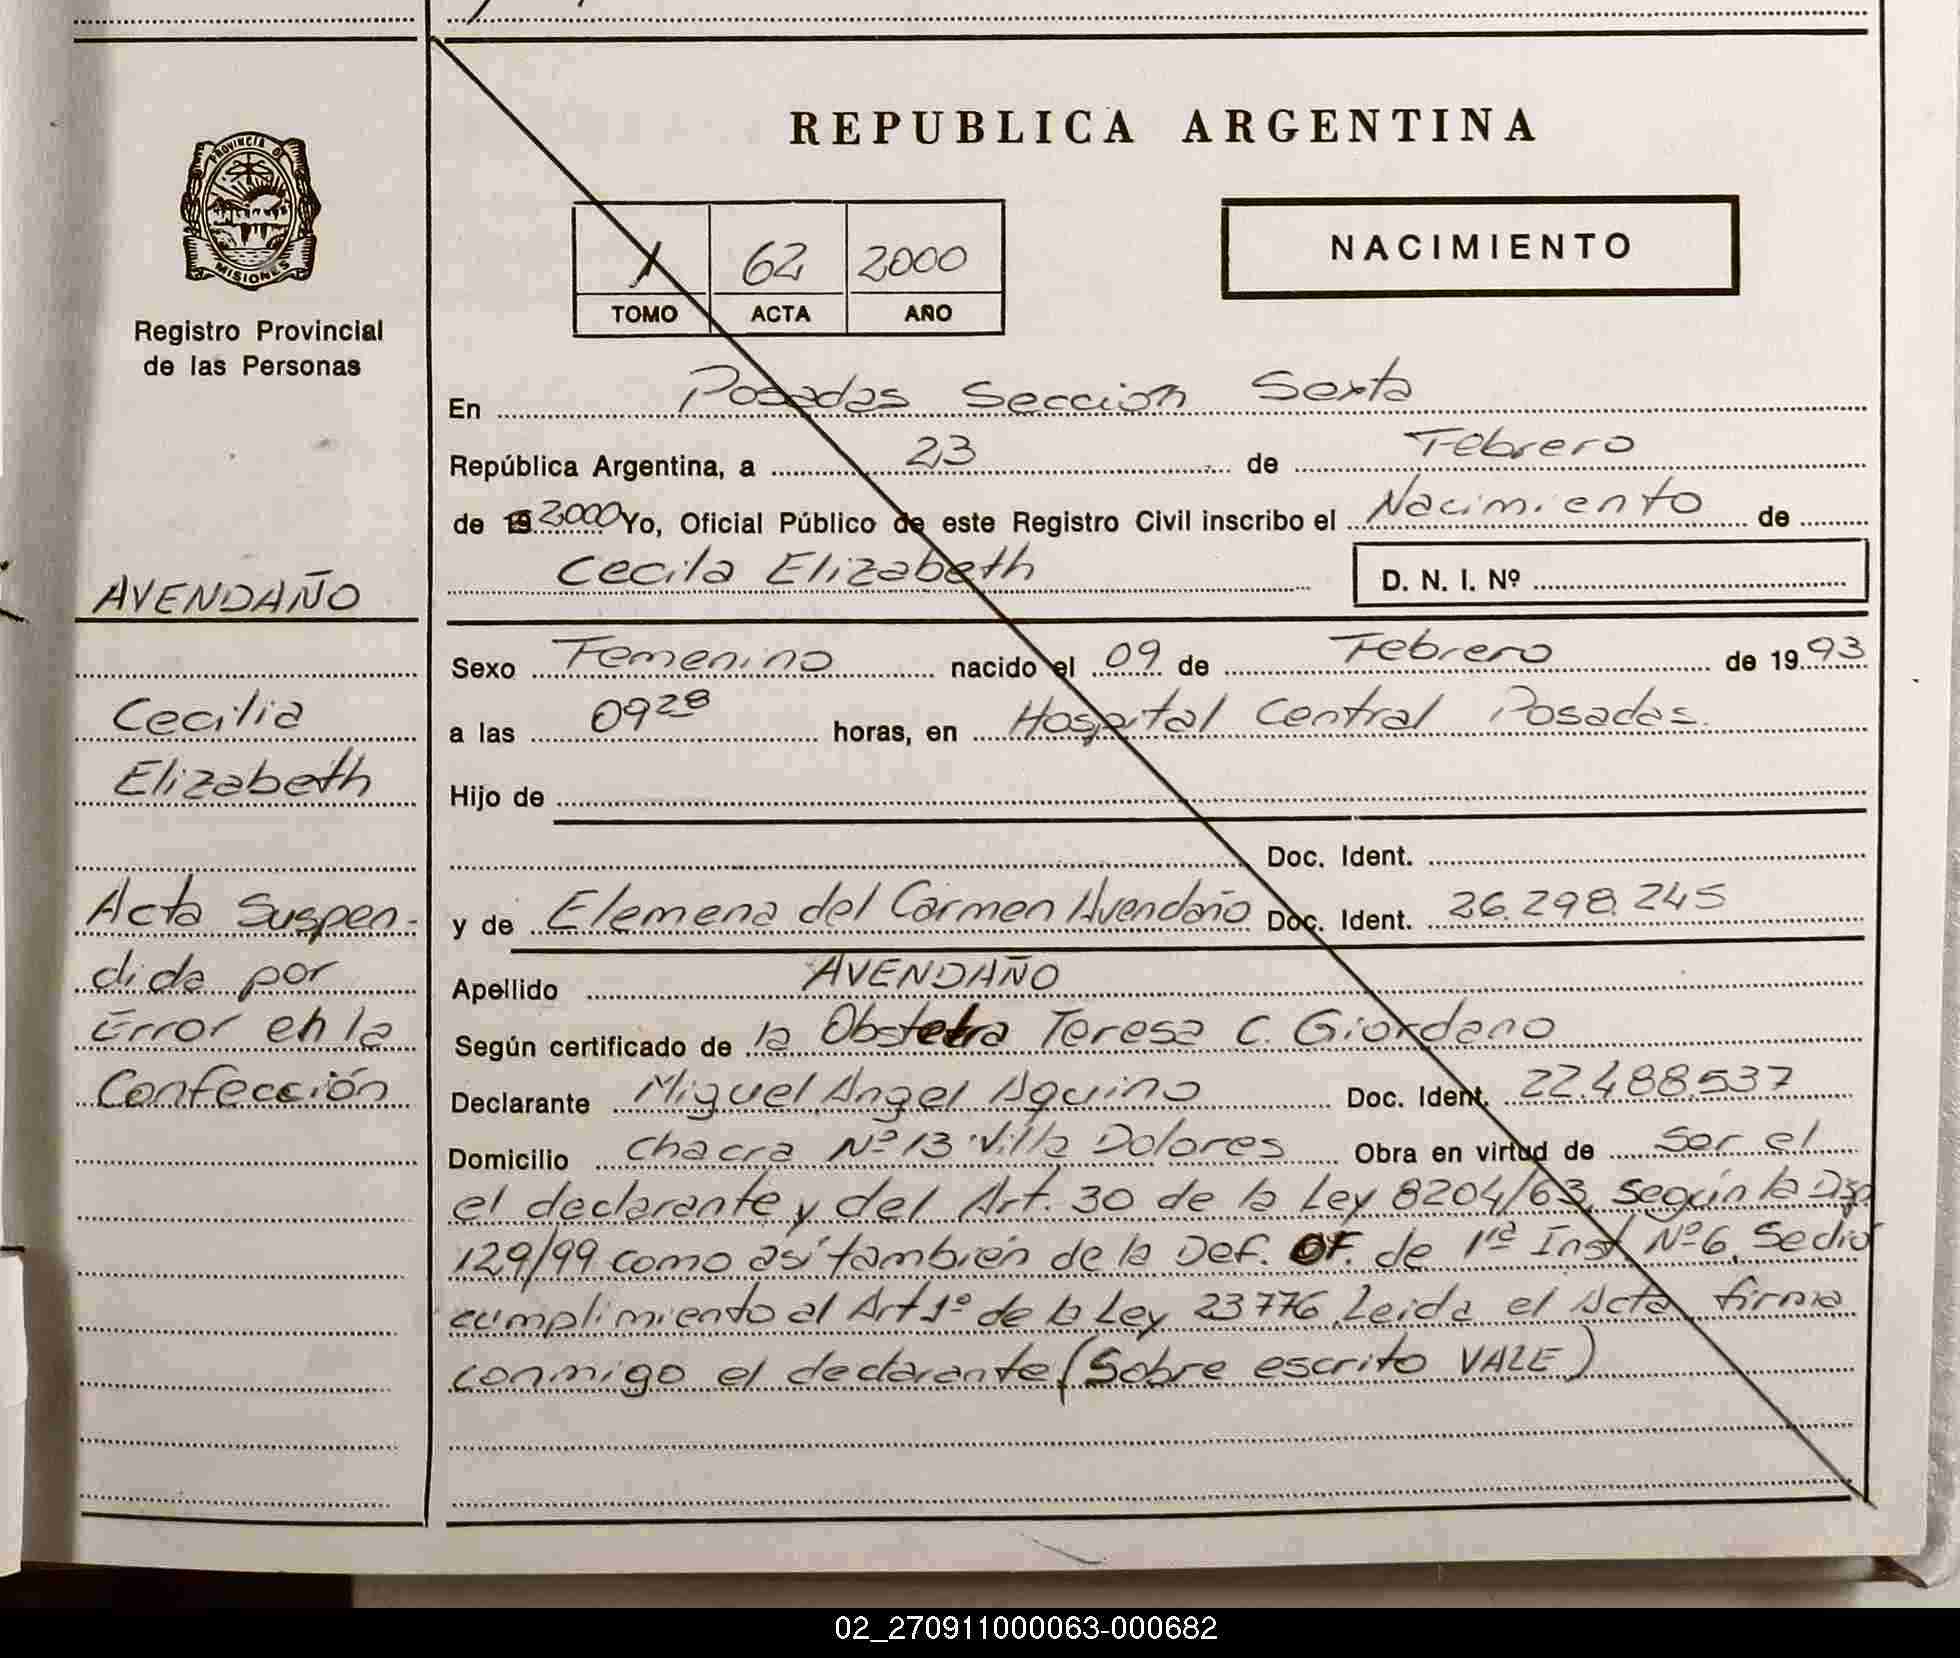 REPUBLICA ARGENTINA
PROVINCIA DE
MISIONES
Registro Provincial
de las Personas
NACIMIENTO
1 62 2000
TOMO ACTA AÑO
En Posadas Sección Sexta
República Argentina, a 23 de Febrero
de 19 2000 Yo, Oficial Público de este Registro Civil inscribo el Nacimiento de
Cecila Elizabeth D. N. I. Nº
AVENDAÑO
Cecilia
Elizabeth
Acta Suspen-
dida por
Error en la
Confección
Sexo Femenino nacido el 09 de Febrero de 1993
a las 09 28 horas, en Hospital Central Posadas.
Hijo de
Doc. Ident.
y de Elemena del Carmen Avendaño Doc. Ident. 26.298.245
Apellido AVENDAÑO
Según certificado de la Obstetra Teresa C. Giordano
Declarante Miguel Angel Aquino Doc. Ident. 22.488.537
Domicilio Chacra Nº 13 Villa Dolores Obra en virtud de ser el
el declarante y del Art. 30 de la Ley 8204/63, según la Disp
129/99 como así también de la Def. OF. de 1ra Inst Nº 6. Se dió
cumplimiento al Art 1º de la Ley 23776. Leida el Acta firma
conmigo el declarante (Sobre escrito VALE)
02_270911000063-000682